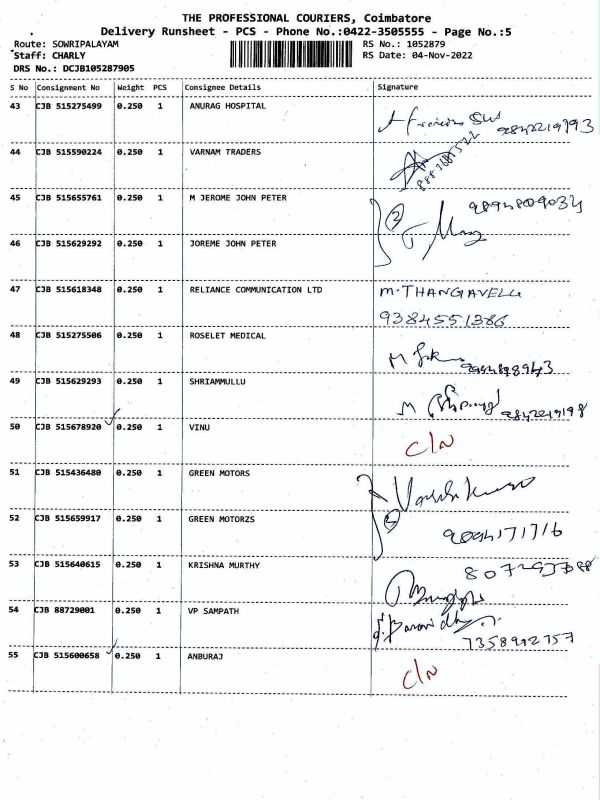 THE PROFESSIONAL COURIERS, Coimbatore
Delivery Runsheet - PCS - Phone No.:0422-3505555 - Page No.:5
Route: SOWRIPALAYAM RS No.: 1052879
Staff: CHARLY RS Date: 04-Nov-2022
DRS No.: DCJB105287905
S No Consignment No Weight PCS Consignee Details Signature
43 CJB 515275499 0.250 1 ANURAG HOSPITAL
44 CJB 515590224 0.250 1 VARNAM TRADERS
45 CJB 515655761 0.250 1 M JEROME JOHN PETER 9894809034
2
46 CJB 515629292 0.250 1 JOREME JOHN PETER
47 CJB 515618348 0.250 1 RELIANCE COMMUNICATION LTD M.THANGAVELU
9384551386
48 CJB 515275506 0.250 1 ROSELET MEDICAL
49 CJB 515629293 0.250 1 SHRIAMMULLU
50 CJB 515678920 0.250 1 VINU C/N
51 CJB 515436480 0.250 1 GREEN MOTORS
52 CJB 515659917 0.250 1 GREEN MOTORZS
53 CJB 515640615 0.250 1 KRISHNA MURTHY
54 CJB 88729001 0.250 1 VP SAMPATH
7358992757
55 CJB 515600658 0.250 1 ANBURAJ C/N